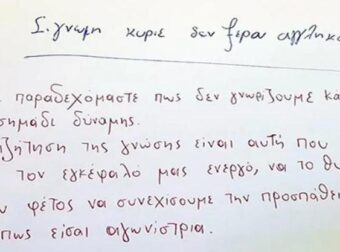 Σ.γνωμη κυριε δεν ξερω αγγληκα
παραδεχόμαστε πως δεν γνωρίζουμε κά
σημάδι δύναμης.
ζήτηση της γνώσης είναι αυτή που
τον εγκέφαλό μας ενεργό, να το θυ
φέτος να συνεχίσουμε την προσπάθει
πως είσαι αγωνίστρια.